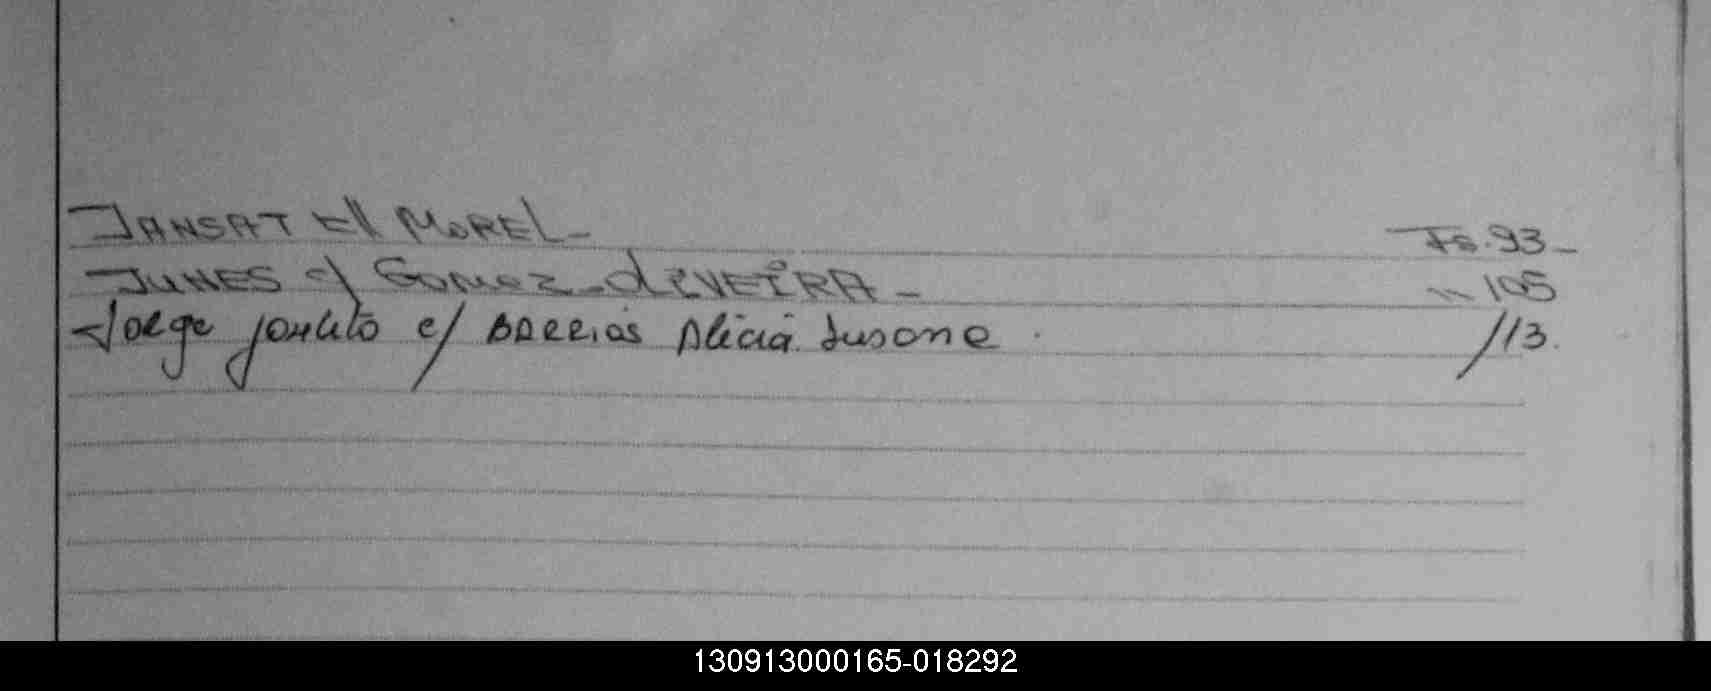 JANSAT c/ MOREL - Fs. 93 -
JUNES c/ GOMEZ - OLIVEIRA - " 105
Jorge c/ BARRIOS Alicia Susana . /113.
130913000165-018292